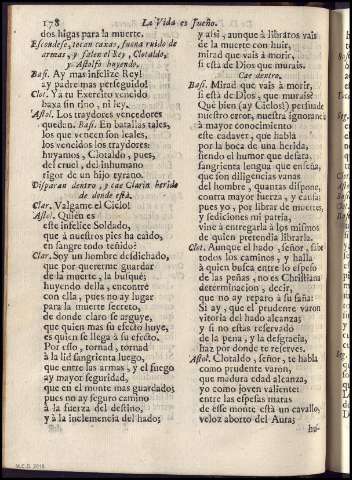 178 La Vida es sueño.
dos higas para la muerte.
Escondese, tocan caxas, suena ruido de
armas, y salen el Rey, Clotaldo,
y Astolfo huyendo.
Bas. Ay mas infelize Rey!
ay padre mas perseguido!
Clot. Ya tu Exercito vencido
baxa sin tino, ni ley.
Astol. Los traydores vencedores
quedan. Bas. En batallas tales,
los que vencen son leales,
los vencidos los traydores:
huyamos, Clotaldo, pues,
del cruel, del inhumano
rigor de un hijo tyrano.
Disparan dentro, y cae Clarin herido
de donde està.
Clar. Valgame el Cielo!
Astol. Quien es
este infelice Soldado,
que à nuestros pies ha caìdo,
en sangre todo teñido?
Clar. Soy un hombre desdichado,
que por quererme guardar
de la muerte, la busquè;
huyendo della, encontrè
con ella, pues no ay lugar
para la muerte secreto,
de donde claro se arguye,
que quien mas su efecto huye,
es quien se llega à su efecto.
Por esso, tornad, tornad
à la lid sangrienta luego,
que entre las armas, y el fuego
ay mayor seguridad,
que en el monte mas guardado;
pues no ay seguro camino
à la fuerza del destino,
y à la inclemencia del hado;
y assi, aunque à libraros vais
de la muerte con huir,
mirad que vais à morir,
si està de Dios que murais.
Cae dentro.
Bas. Mirad que vais à morir,
si està de Dios, que murais!
Què bien (ay Cielos!) persuade
nuestro error, nuestra ignorancia
à mayor conocimiento
este cadaver, que habla
por la boca de una herida,
siendo el humor que desata
sangrienta lengua que enseña,
que son diligencias vanas
del hombre, quantas dispone,
contra mayor fuerza, y causa:
pues yo, por librar de muertes,
y sediciones mi patria,
vine à entregarla à los mismos
de quien pretendia librarla.
Clot. Aunque el hado, señor, sabe
todos los caminos, y halla
à quien busca entre lo espeso
de las peñas, no es Christiana
determinacion, decir,
que no ay reparo à su saña:
Si ay, que el prudente varon
vitoria del hado alcanza;
y si no estàs reservado
de la pena, y la desgracia,
haz por donde te reserves.
Astol. Clotaldo, señor, te habla
como prudente varon,
que madura edad alcanza,
yo como joven valiente:
entre las espesas matas
de esse monte està un cavallo,
veloz aborto del Aura;
hu-